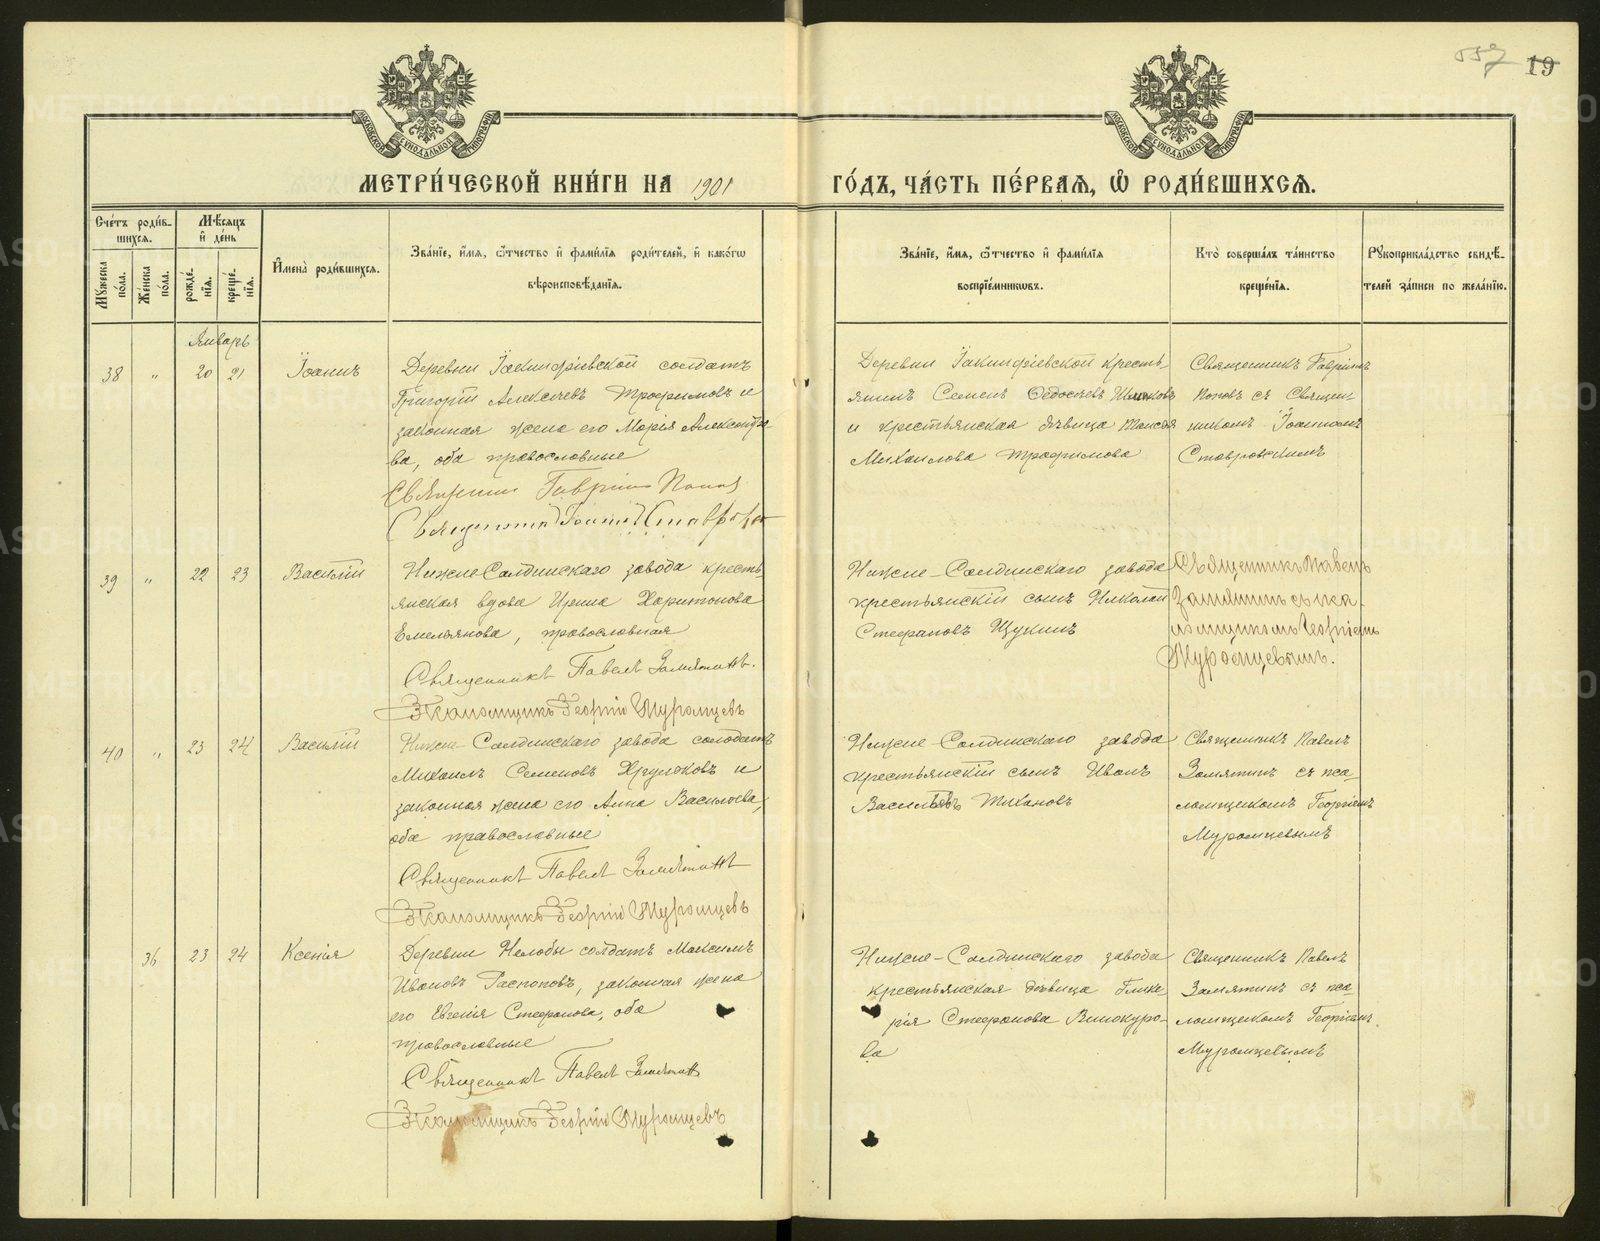 557 19
МЕТРИ́ЧЕСКОЙ КНИ́ГИ НА 1901
ГО́ДЪ, ЧА́СТЬ ПЕ́РВАЯ, Ѿ РОДИ́ВШИХСЯ.
МОСКОВСКОЙ СѴНОДАЛЬНОЙ ТИПОГРАФІИ
МОСКОВСКОЙ СѴНОДАЛЬНОЙ ТИПОГРАФІИ
Сче́тъ роди́в-
шихся.
Мꙋ́жеска по́ла.
Же́нска по́ла.
Мѣ́сяцъ
и҆ де́нь
рожде́-
нія.
креще́-
нія.
И҆мена̀ роди́вшихся.
Зва́ніе, и҆́мя, ѻ҆́тчество и҆ фами́лія роди́телей, и҆ како́гѡ
вѣроисповѣ́данія.
Зва́ніе, и҆́мя, ѻ҆́тчество и҆ фами́лія
воспріе́мникѡвъ.
Кто̀ соверша́лъ та́инство
креще́нія.
Рꙋкоприкла́дство свидѣ́-
телей за́писи по жела́нію.
Январь
38 „ 20 21 Іоаннъ
Деревни Іакинфіевской солдатъ
Григорій Алексѣевъ Трофимовъ и
законная жена его Марія Александро-
ва, оба православные
Священникъ Гавріилъ Поповъ
Священникъ Іоаннъ Ставровскій
Деревни Іакинфіевской кресть-
янинъ Семенъ Федосѣевъ
и крестьянская дѣвица Таисія
Михаилова Трофимова
Священникъ Гавріилъ
Поповъ съ Священ-
никомъ Іоанномъ
Ставровскимъ
39 „ 22 23 Василій
Нижне-Салдинскаго завода кресть-
янская вдова Ирина Харитонова
Емельянова, православная
Священникъ Павелъ Замятинъ.
Псаломщикъ Георгій Муромцевъ
Нижне-Салдинскаго завода
крестьянскій сынъ Николай
Стефановъ Щукинъ
Священникъ Павелъ
Замятинъ съ пса-
ломщикомъ Георгіемъ
Муромцевымъ.
40 „ 23 24 Василій
Нижне-Салдинскаго завода солдатъ
Михаилъ Семеновъ Хрульковъ и
законная жена его Анна Васильева,
оба православные
Священникъ Павелъ Замятинъ
Псаломщикъ Георгій Муромцевъ
Нижне-Салдинскаго завода
крестьянскій сынъ Иванъ
Васильевъ Тихановъ
Священникъ Павелъ
Замятинъ съ пса-
ломщикомъ Георгіемъ
Муромцевымъ
36 23 24 Ксенія
Деревни Нелобы солдатъ Максимъ
Ивановъ Распоповъ, законная жена
его Евгенія Стефанова, оба
православные
Священникъ Павелъ Замятинъ
Псаломщикъ Георгій Муромцевъ
Нижне-Салдинскаго завода
крестьянская дѣвица Глике-
рія Стефанова Винокуро-
ва
Священникъ Павелъ
Замятинъ съ пса-
ломщикомъ Георгіемъ
Муромцевымъ